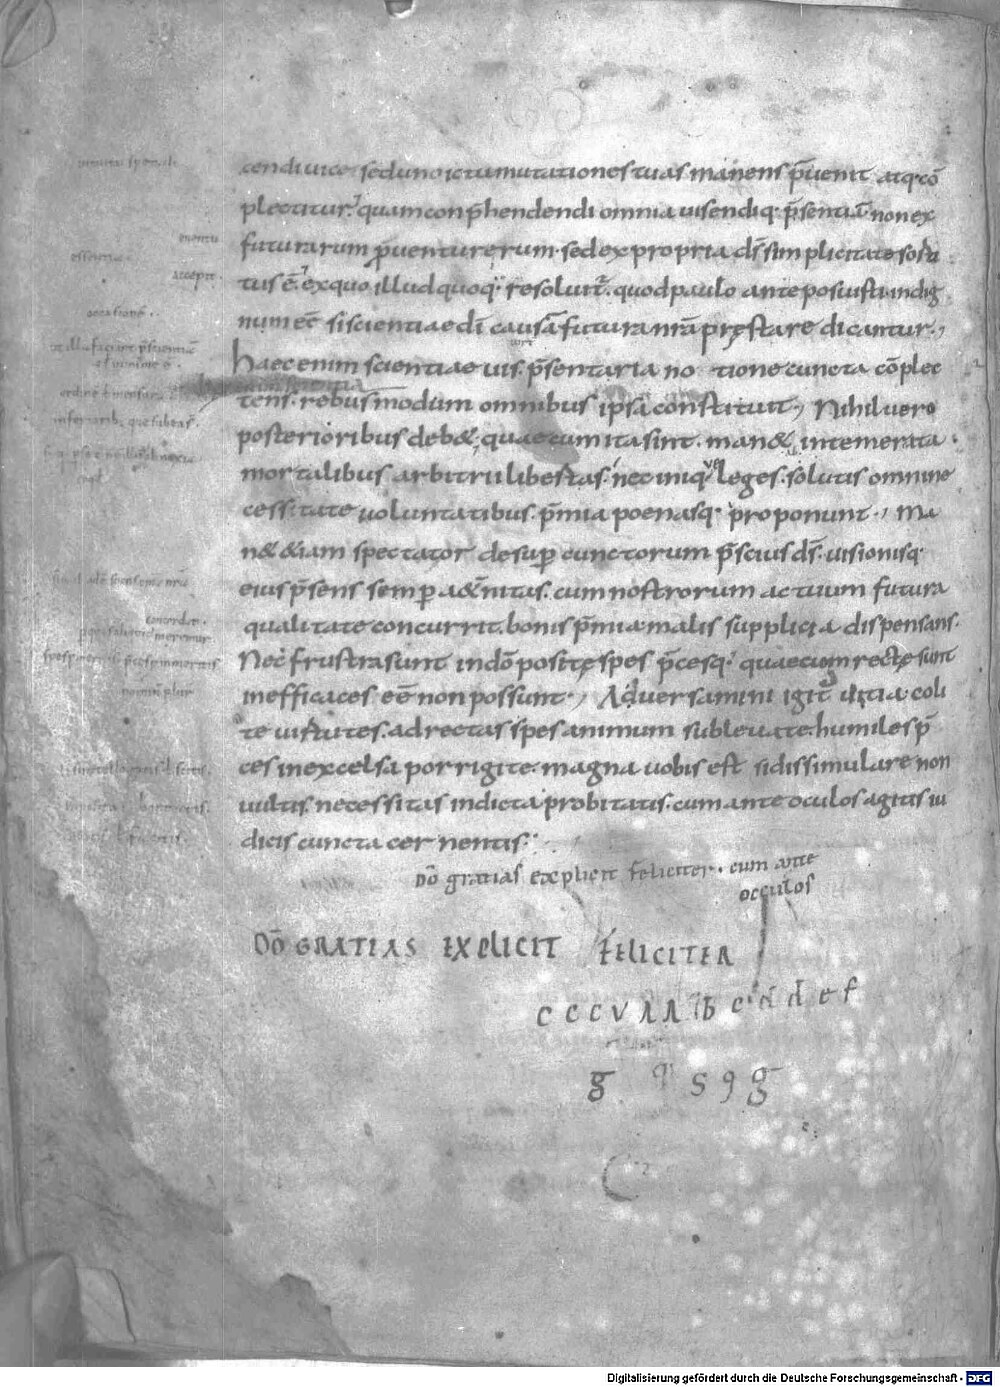 cendi uice sed uno ictu mutationes tuas manens p̄uenit atq; cō
plectitur. quam conp̄hendendi omnia uisendiq; p̄sentiā non ex
futurarum ꝓuentu rerum. sed ex propria dꞩ̄ simplicitate sorti
tus ē. ex quo illud quoq; resoluit̄. quod paulo ante posuisti indig
num eē si scientiae dī causā futura nrā pręstare dicantur.
haec enim scientiae uis. p̄sentaria notione cuncta cōplec
tens. rebus modum omnibus ipsa constituit, Nihil uero
posterioribus deb&. quae cum ita sint. man& intemerata
mortalibus arbitrii libertas. nec iniquę leges. solutis omni ne
cessitate uoluntatibus. p̄mia poenasq; proponunt., Ma
n& &iam spectator desup̄ cunctorum p̄scius dꞩ̄. uisionisq;
eius p̄sens semp̄ aet̄nitas. cum nostrorum actuum futura
qualitate concurrit. bonis p̄mia malis supplicia dispensans.
Nec frustra sunt in dō positę spes p̄cesq; quae cum rectę sunt
inefficaces eē non possunt., Aduersamini igit̄ uitia. coli
te uirtutes. ad rectas spes animum subleuate. humiles p̄
ces in excelsa porrigite. magna uobis est si dissimulare non
uultis. necessitas indicta probitatis. cum ante oculos agitis iu
dicis cuncta cernentis.
Dō gratias explicit feliciter. cum ante
occulos
DŌ GRATIAS EXPLICIT FELICITER
c c c v a a b c d d e f
g q s 9 g
C
Digitalisierung gefördert durch die Deutsche Forschungsgemeinschaft - DFG